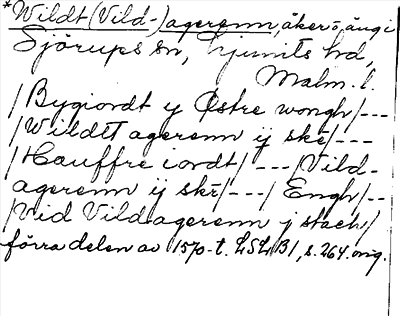 *Wildt(Vild-)agerenn, åker o. äng i
Sjörups sn, Ljunits hd,
Malm. l.
/Bygiordt y Østre wongh/---
/Wildtt agerenn ij ske/---
/Hauffre iordt/---/Vild-
agerenn ij ske/---/Engh/--
/Vid Vildagerenn j stach/
förra delen av 1570-t. LSLB1, s. 264. orig.